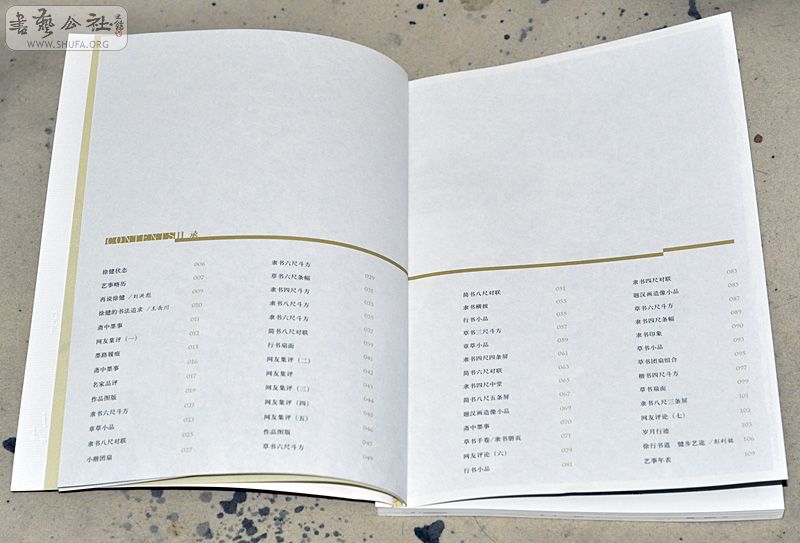 書藝公社
WWW.SHUFA.ORG
CONTENTS目录
徐健状态 006
艺事略历 007
再说徐健/刘洪彪 009
徐健的书法追求/王岳川 010
斋中墨事 011
网友集评(一) 012
墨路履痕 013
斋中墨事 016
名家品评 017
作品图版 019
隶书六尺斗方 021
草草小品 023
隶书八尺对联 025
小楷团扇 027
隶书六尺斗方
草书六尺条幅 029
隶书四尺斗方 031
隶书八尺斗方 033
隶书六尺斗方 035
简书八尺对联 037
行书扇面 039
网友集评(二) 041
网友集评 042
网友集评(三) 043
网友集评(四) 044
网友集评(五) 045
作品图版 046
草书六尺斗方 047
049
简书八尺对联 051
隶书横披 053
行书小品 055
草书三尺斗方 057
草草小品 059
隶书四尺四条屏 061
简书六尺对联 063
隶书四尺中堂 065
简书八尺五条屏 067
题汉画造像小品 069
斋中墨事 070
草书手卷/隶书册页 071
网友评论(六) 079
行书小品 081
隶书四尺对联 083
题汉画造像小品 085
草书六尺斗方 087
隶书四尺条幅 089
隶书印象 090
草书小品 093
草书团扇组合 095
楷书四尺斗方 097
草书扇面 099
隶书八尺三条屏 101
网友评论(七) 102
岁月行迹 103
徐行书道 健步艺途/彭利铭 106
艺事年表 109